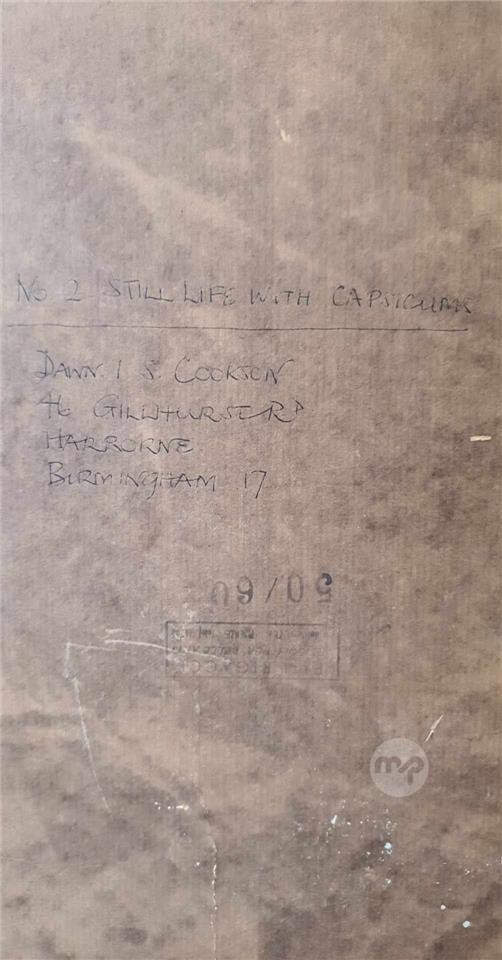 No 2 STILL LIFE WITH CAPSICUMS
DAWN. I S. COOKSON
46 GILLHURST RD
HARBORNE
BIRMINGHAM 17
50/60
mp